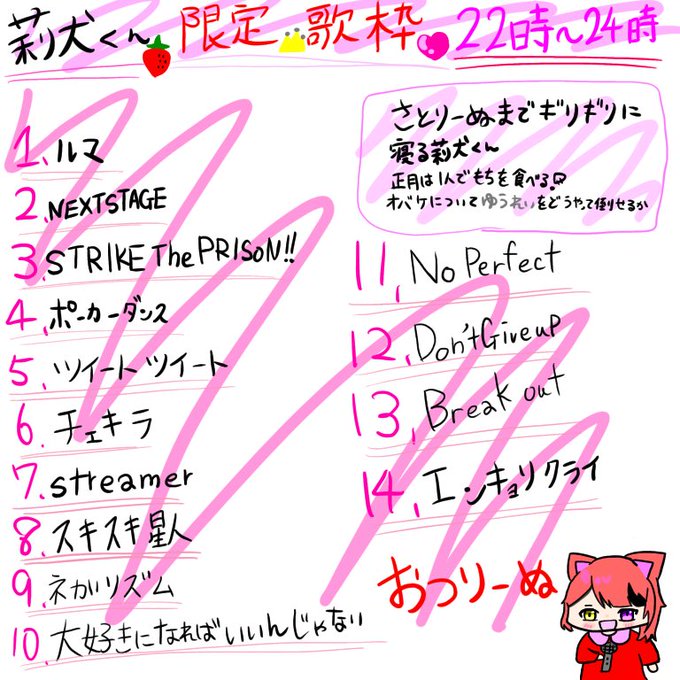 莉犬くん 限定 歌枠 22時～24時
さとりーぬまでギリギリに
寝る莉犬くん
正月は1人でもちを食べる
オバケについてゆうれいをどうやって倒せるか
1.ルマ
2.NEXTSTAGE
3.STRIKE The PRISON!!
4.ポーカーダンス
5.ツイートツイート
6.チェキラ
7.streamer
8.スキスキ星人
9.ネガリズム
10.大好きになればいいんじゃない
11.No Perfect
12.Don't Give up
13.Break out
14.エンキョリクライ
おつりーぬ